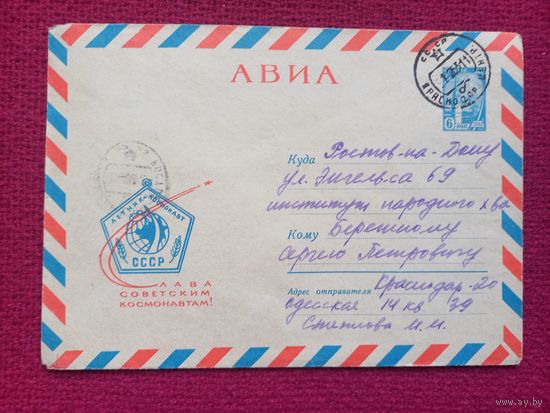 АВИА
СССР
КРАСНОДАР
6
Куда Ростов-на-Дону
ул. Энгельса 69
институт народного х-ва
Кому Бережному
Сергею Петровичу
Адрес отправителя Краснодар-20
Одесская 14 кв 39
И.И.
ЛЕТЧИК-КОСМОНАВТ
СССР
СЛАВА
СОВЕТСКИМ
КОСМОНАВТАМ!
www.ay.by